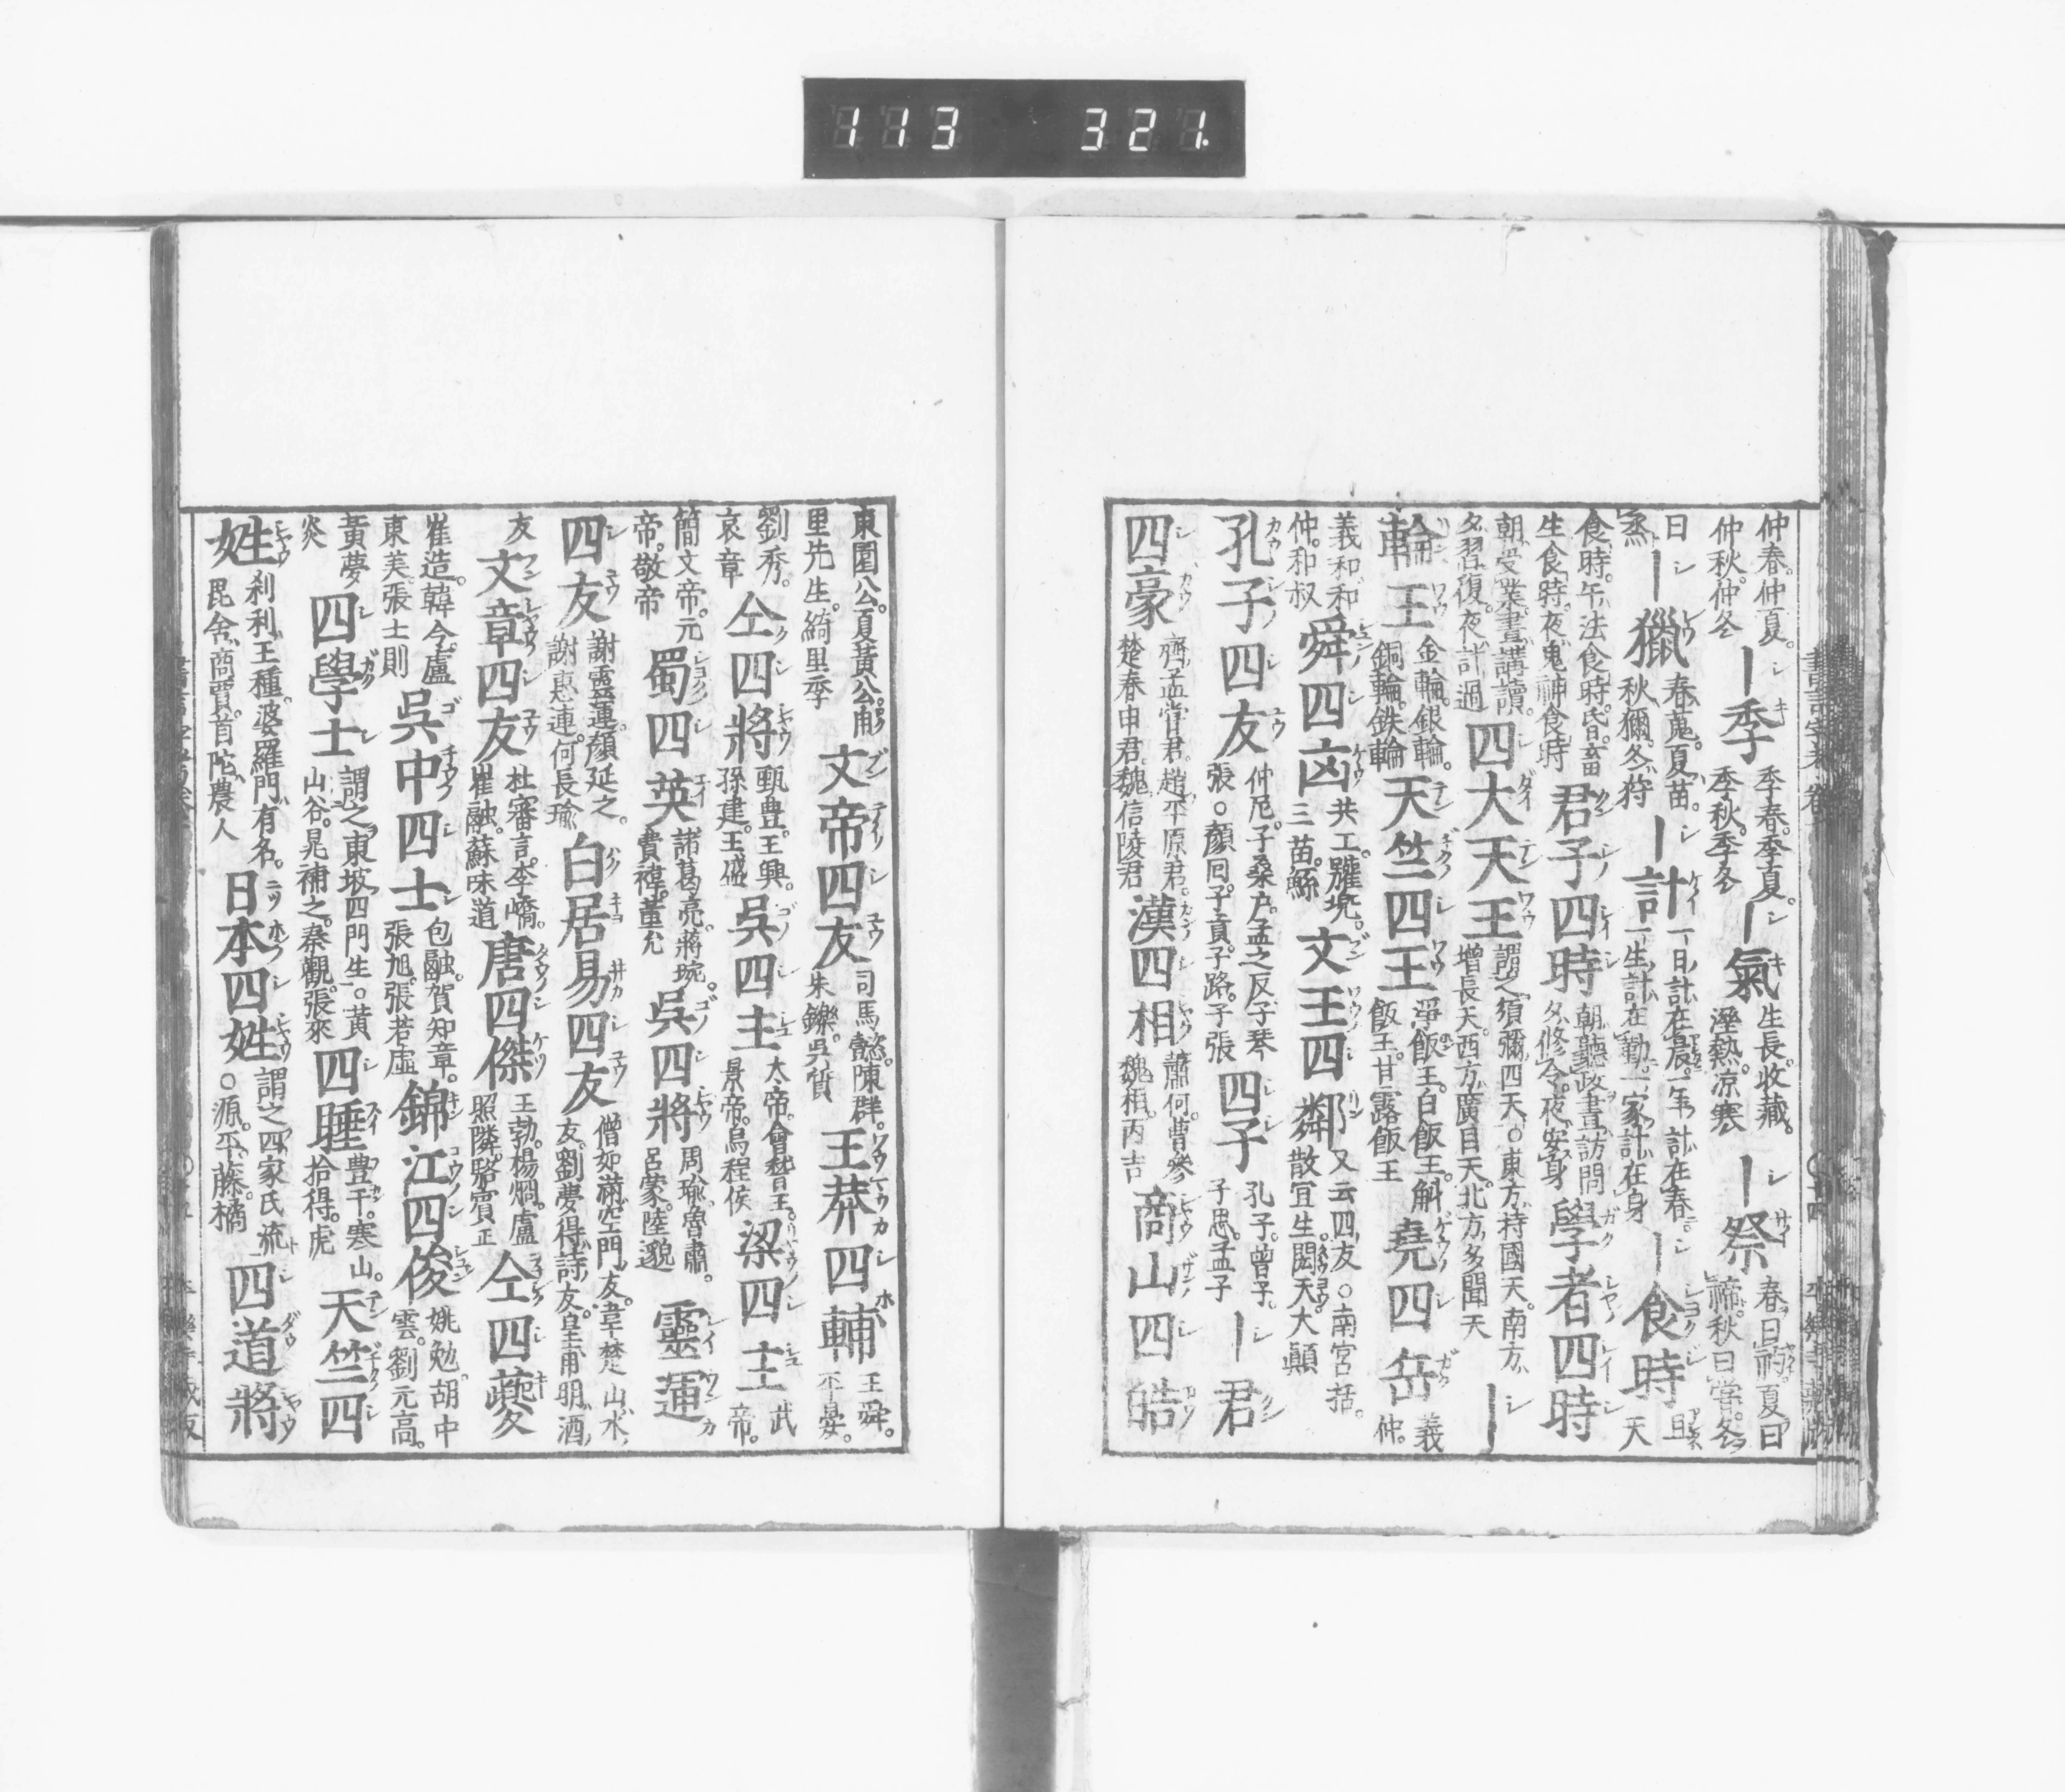 113 321.
仲春。仲夏。仲秋。仲冬 ｜季 季春。季夏。季秋。季冬 ｜氣 生長。收藏。溼熱。凉寒 ｜祭 春曰礿。夏曰禘。秋曰嘗。冬
曰烝 ｜獵 春蒐。夏苗。秋獮。冬狩 ｜計 一日計在晨。一年計在春。一生計在勤。一家計在身 ｜食時 旦天
食時。午法食時。昏畜生食時。夜鬼神食時 君子四時 朝聽政。晝訪問。夕修令。夜安身 學者四時
朝受業。晝講讀。夕習復。夜計過 四大天王 謂之須彌四天。○東方持國天。南方增長天。西方廣目天。北方多聞天 ｜
輪王 金輪。銀輪。銅輪。鉄輪 天竺四王 淨飯王。白飯王。斛飯王。甘露飯王 堯四岳 義仲。
義和。和仲。和叔 舜四凶 共工。驩兜。三苗。鯀 文王四鄰 又云四友。○南宮括。散宜生。閎夭。大顚
孔子四友 仲尼。子桑戸。孟之反。子琴張。○顏回。子貢。子路。子張 四子 孔子。曾子。子思。孟子 ｜君
四豪 齊孟嘗君。趙平原君。楚春申君。魏信陵君 漢四相 蕭何。曹參。魏相。丙吉 商山四皓
東園公。夏黃公。甪里先生。綺里季 文帝四友 司馬懿。陳群。朱鑠。吳質 王莽四輔 王舜。平晏。
劉秀。哀章 仝四將 甄豊。王興。孫建。王盛 吳四主 大帝。會稽王。景帝。烏程侯 梁四主 武帝。
簡文帝。元帝。敬帝 蜀四英 諸葛亮。蔣琬。費禕。董允 吳四將 周瑜。魯肅。呂蒙。陸邈 靈運
四友 謝靈運。顏延之。謝惠連。何長瑜 白居易四友 僧如滿空門友。韋楚山水友。劉夢得詩友。皇甫明酒
友 文章四友 杜審言。李嶠。崔融。蘇味道 唐四傑 王勃。楊烱。盧照隣。駱賓王 仝四夔
崔造。韓今。盧東美。張士則 吳中四士 包融。賀知章。張旭。張若虛 錦江四俊 姚勉。胡中雲。劉元高。
黃夢炎 四學士 謂之東坡四門生。○黃山谷。晁補之。秦觀。張來 四睡 豊干。寒山。拾得。虎 天竺四
姓 刹利王種。婆羅門有名。毘舍商賈。首陀農人 日本四姓 謂之四家氏流。○源。平。藤。橘 四道將